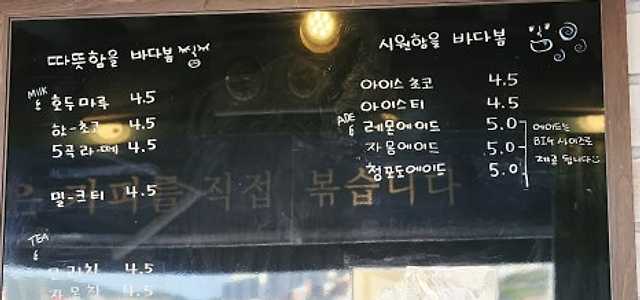 따뜻함을 바다봄
MILK &
호두마루 4.5
핫-초코 4.5
5곡라-떼 4.5
밀-크티 4.5
TEA &
4.5
자몽차 4.5
시원함을 바다봄
아이스 초코 4.5
아이스티 4.5
ADE &
레몬에이드 5.0
자몽에이드 5.0
청포도에이드 5.0
에이드는
BIG 사이즈로
제공 됩니다
커피를 직접 볶습니다